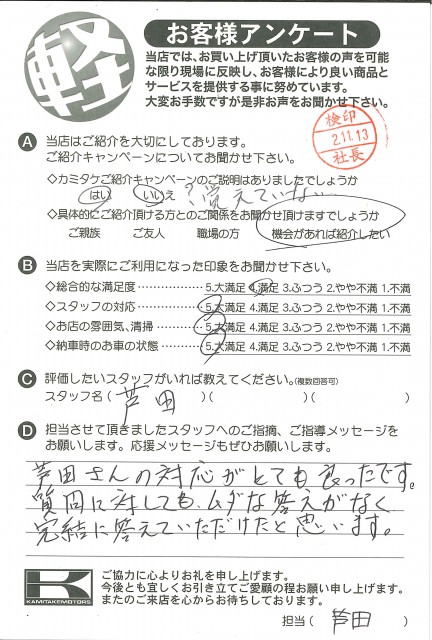 軽
お客様アンケート
当店では、お買い上げ頂いたお客様の声を可能
な限り現場に反映し、お客様により良い商品と
サービスを提供する事に努めています。
大変お手数ですが是非お声をお聞かせ下さい。
検印
2.11.13
社長
A 当店はご紹介を大切にしております。
ご紹介キャンペーンについてお聞かせ下さい。
◇カミタケご紹介キャンペーンのご説明はありましたでしょうか
はい いいえ ? 覚えていない
◇具体的にご紹介頂ける方とのご関係をお聞かせ頂けますでしょうか
ご親族 ご友人 職場の方 機会があれば紹介したい
B 当店を実際にご利用になった印象をお聞かせ下さい。
◇総合的な満足度 5.大満足 4.満足 3.ふつう 2.やや不満 1.不満
◇スタッフの対応 5.大満足 4.満足 3.ふつう 2.やや不満 1.不満
◇お店の雰囲気、清掃 5.大満足 4.満足 3.ふつう 2.やや不満 1.不満
◇納車時のお車の状態 5.大満足 4.満足 3.ふつう 2.やや不満 1.不満
C 評価したいスタッフがいれば教えてください。(複数回答可)
スタッフ名( 芦田 )( )( )
D 担当させて頂きましたスタッフへのご指摘、ご指導メッセージを
お願いします。応援メッセージもぜひお願いします。
芦田さんの対応がとても良ったです。
質問に対しても、ムダな答えがなく
完結に答えていただけたと思います。
K
KAMITAKEMOTORS
ご協力に心よりお礼を申し上げます。
今後とも宜しくお引き立てご愛顧の程お願い申し上げます。
またのご来店を心からお待ちしております。
担当( 芦田 )